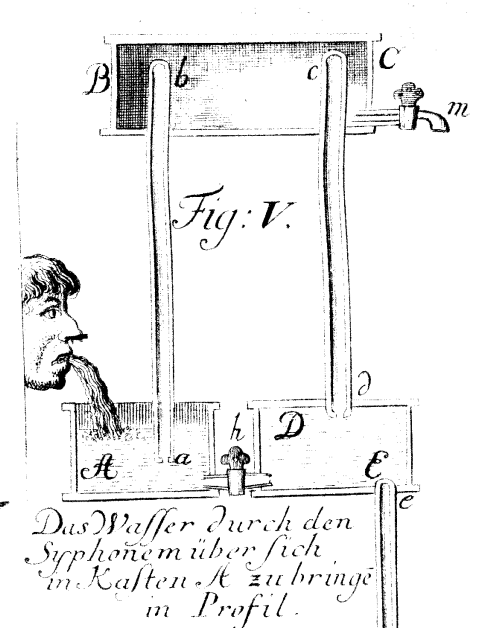 B b c C
m
Fig: V.
d
h
D
A a
E
e
Das Wasser durch den
Syphonem über sich
in Kasten A zu bringē
in Profil.